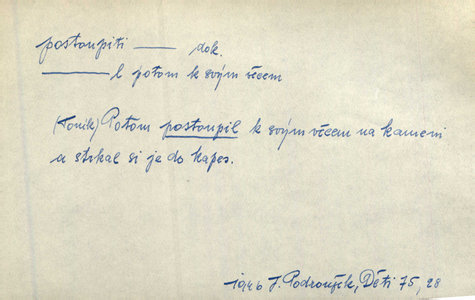 postoupiti —— dok.
———l potom k svým věcem
(Toník) Potom postoupil k svým věcem na kameni
a strkal si je do kapes.
1946 J. Podroužek, Děti 75, 28